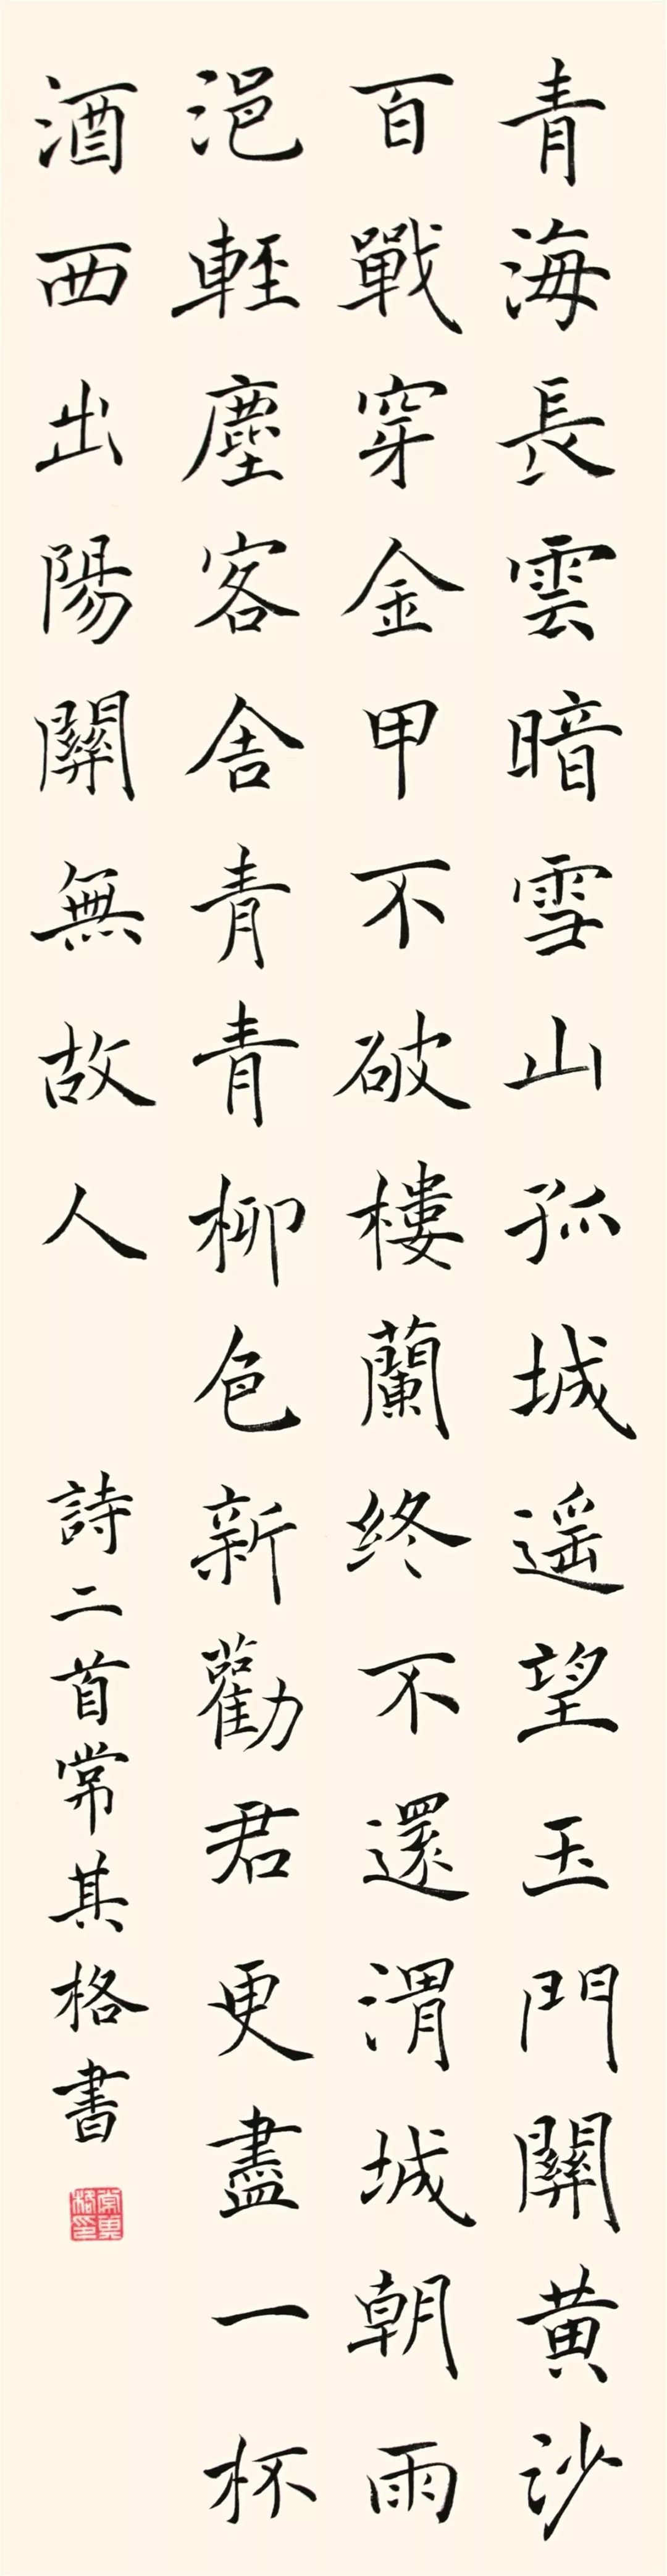 青海長雲暗雪山孤城遥望玉門關黄沙
百戰穿金甲不破樓蘭終不還渭城朝雨
浥輕塵客舍青青柳色新勸君更盡一杯
酒西出陽關無故人 詩二首常其格書